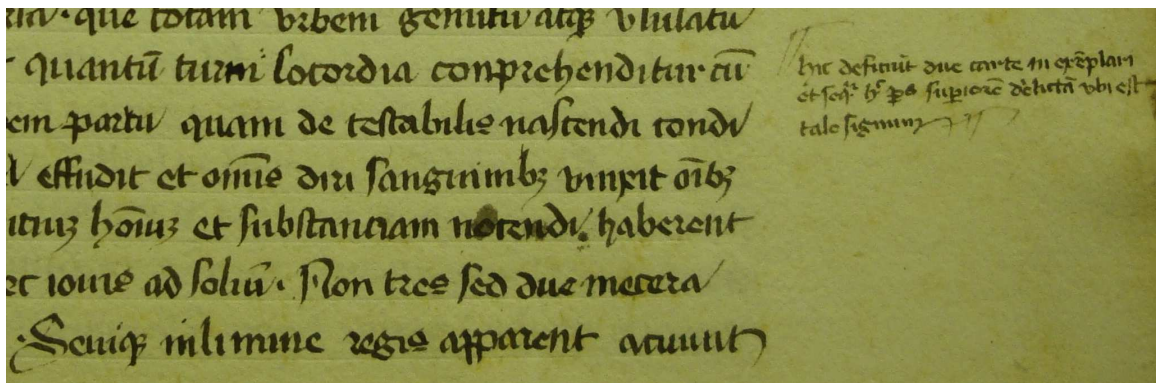 que totam vrbem gemitu atqꝫ vlulatu
quantū turni locordia conprehenditur cū
em partu quam de testabilis nascendi condi
effudit et om̄s diri sanguinibꝫ vinxit oībꝫ
hōiuꝫ et substanciam nocendi haberent
ec iouis ad soliū. Non tres sed due mecera
Seuiqꝫ in limine regis apparent acuunt
hic deficiūt due carte in exēplari
et seqr̄ superiorē vbi est
tale signum